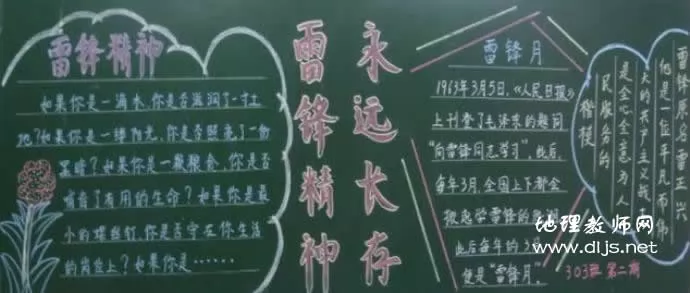 雷锋精神
如果你是一滴水,你是否滋润了一寸土
地?如果你是一缕阳光,你是否照亮了一份
黑暗?如果你是一颗粮食,你是否
哺育了有用的生命?如果你是最
小的螺丝钉,你是否守在你生活
的岗位上?如果你是……
永远长存
雷锋精神
雷锋月
1963年3月5日,《人民日报》
上刊登了毛泽东的题词
"向雷锋同志学习"。此后,
每年3月,全国上下都会
掀起学雷锋的
此后每年的3
便是"雷锋月"。
雷锋原名雷正兴
他是一位平凡而伟
大的共产主义战
是全心全意为人
民服务的
楷模
303班 第二期
地理教师网
www.dljs.net